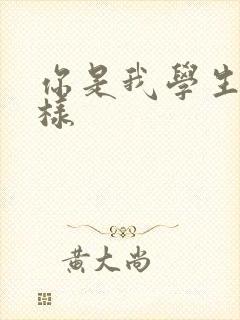 你是我學生
樣
黃大尚